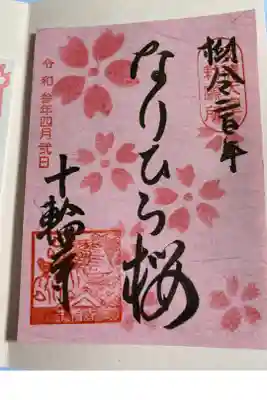 樹令二百年
なりひら桜
令和参年四月弐日
十輪寺